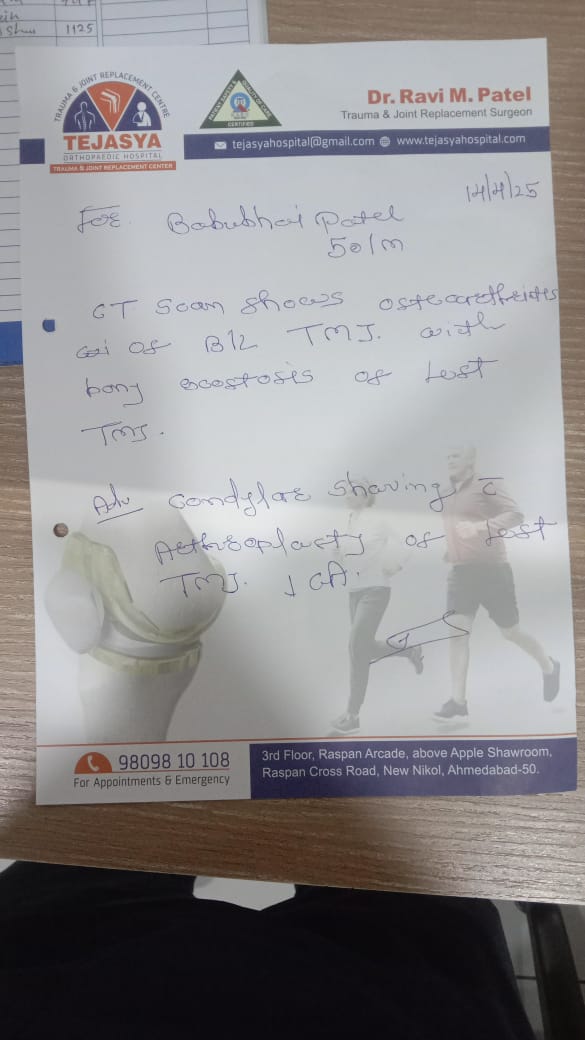 1125
TRAUMA & JOINT REPLACEMENT CENTRE
TEJASYA
ORTHOPAEDIC HOSPITAL
TRAUMA & JOINT REPLACEMENT CENTER
CERTIFIED
Dr. Ravi M. Patel
Trauma & Joint Replacement Surgeon
tejasyahospital@gmail.com www.tejasyahospital.com
14/4/25
For. Babubhai Patel
50/m
CT Scan shows
of B/L TMJ. with
bony of
TMJ.
Adv Condylar Shaving c̄
of
TMJ. ↓ GA.
98098 10 108
For Appointments & Emergency
3rd Floor, Raspan Arcade, above Apple Shawroom,
Raspan Cross Road, New Nikol, Ahmedabad-50.